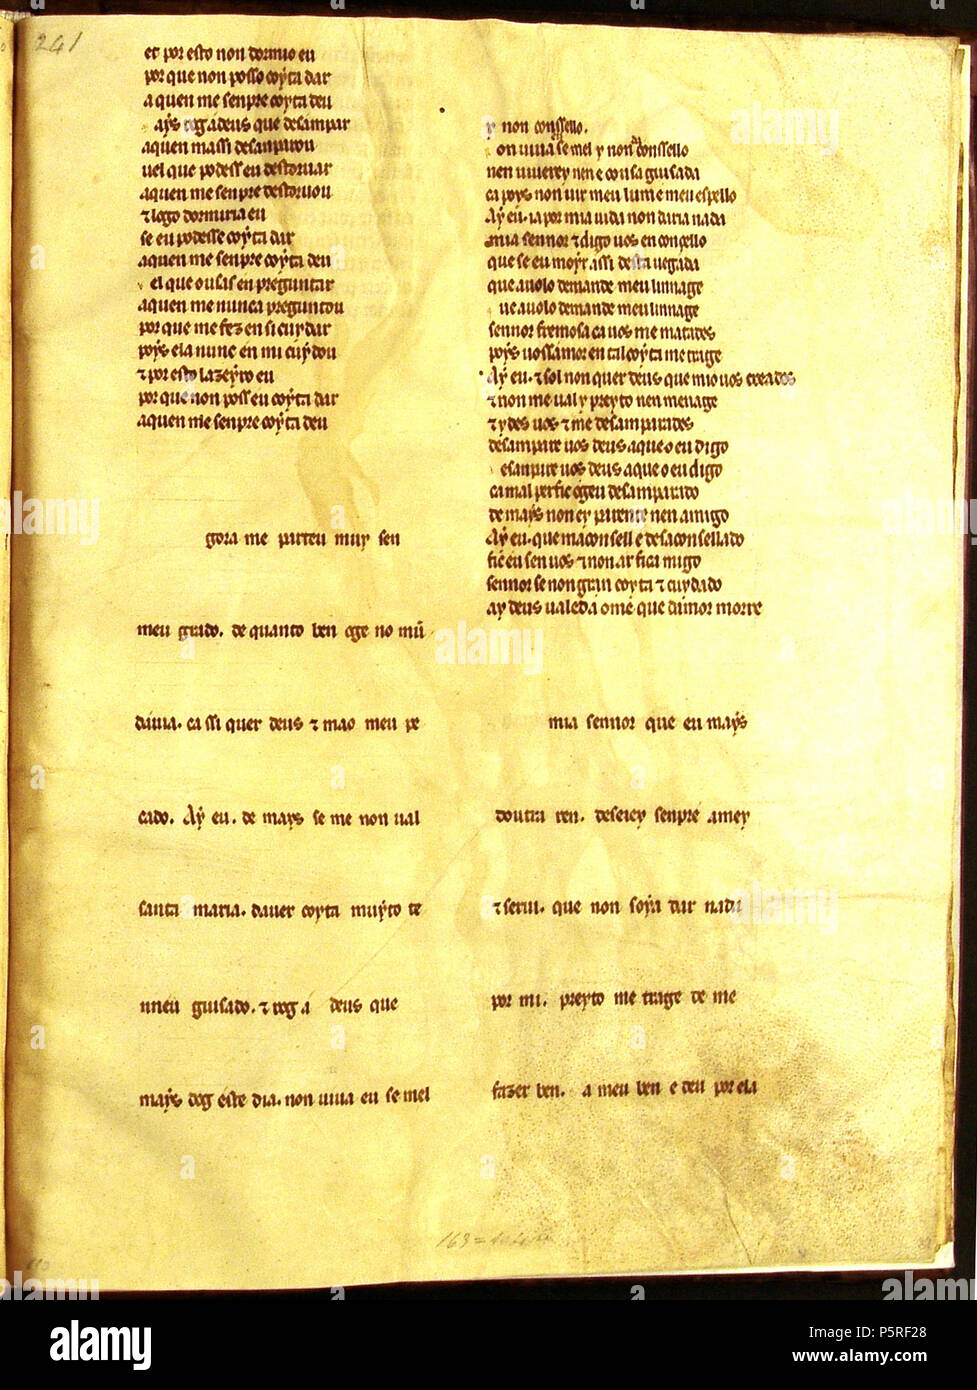 241
et por esto non dormio eu
por que non posso coỹta dar
a quen me senpre coỹta deu
aỹs rog a deus que desampar
aquen massi desanparou
uel que podess eu destoruar
aquen me senpre destoruou
⁊ logo dormiria eu
se eu podesse coỹta dar
aquen me senpre coỹta deu
el que ousas en preguntar
aquen me nunca preguntou
por que me fez en si cuydar
poỹs ela nunc en mi cuỹdou
⁊ por esto lazeỹro eu
por que non poss eu coỹta dar
aquen me senpre coỹta deu
gora me parteu muy sen
meu grado. de quanto ben oge no mũ
dauia. ca ssi quer deus ⁊ mao meu pe
cado. Aỹ eu. de mays se me non ual
santa maria. dauer coyta muỹto te
nneu guisado. ⁊ rog a deus que
maỹs dog este dia. non uiua eu se mel
y non conssello.
on uiua se mel y non a conssello
nen uiuerey nen e cousa guisada
ca poys non uir meu lume meu espello
Aỹ eu. ia por mia uida non daria nada
mia sennor ⁊ digo uos en conçello
que se eu moỹr assi desta uegada
que auolo demande meu linnage
ue auolo demande meu linnage
sennor fremosa ca uos me matades
poỹs uoss amor en tal coỹta me trage
Aỹ eu. ⁊ sol non quer deus que mio uos creades
⁊ non me ual y preyto nen menage
⁊ ydes uos ⁊ me desamparades
desampare uos deus aque o eu digo
esanpare uos deus aque o eu digo
ca mal per fic ogeu desamparado
de maỹs non ey parente nen amigo
Aỹ eu. que maconsell e desaconsellado
fic eu sen uos ⁊ non ar fica migo
sennor se non gran coyta ⁊ cuydado
ay deus ualed a ome que damor morre
mia sennor que eu maỹs
doutra ren. desejey senpre amey
⁊ serui. que non soỹa dar nada
por mi. preyto me trage de me
fazer ben. a meu ben e deu por ela
163
alamy
Image ID: P5RF28
www.alamy.com